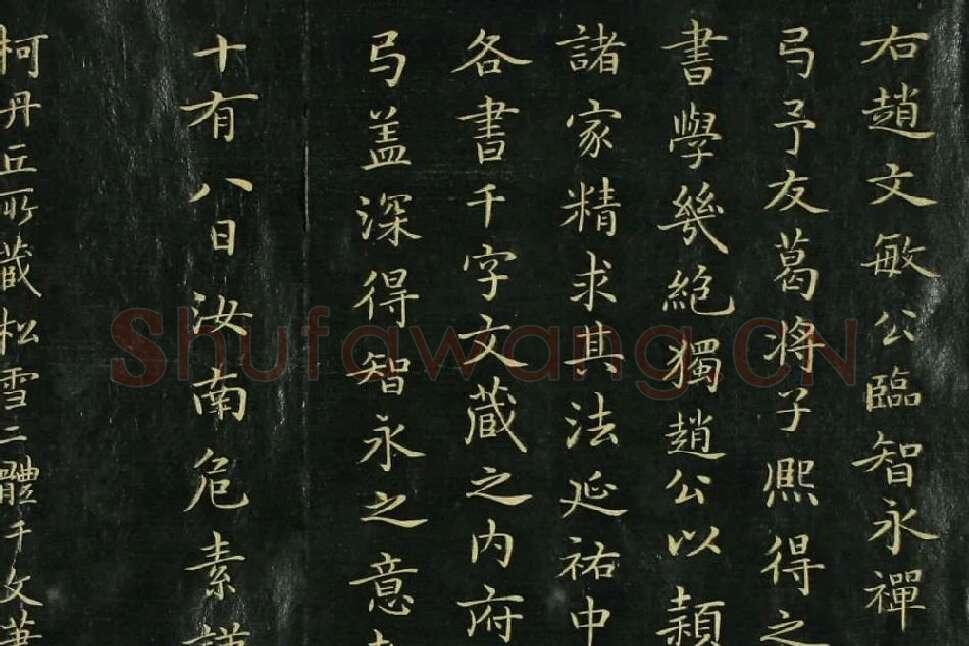 右趙文敏公臨智永禪
弓予友葛将子熈得之
書學㡬絶獨趙公以頴
諸家精求其法延祐中
各書千字文蔵之内府
弓盖深得智永之意
十有八日汝南危素謹
柯丹丘所藏松雪二體千文
Shufawang.CN